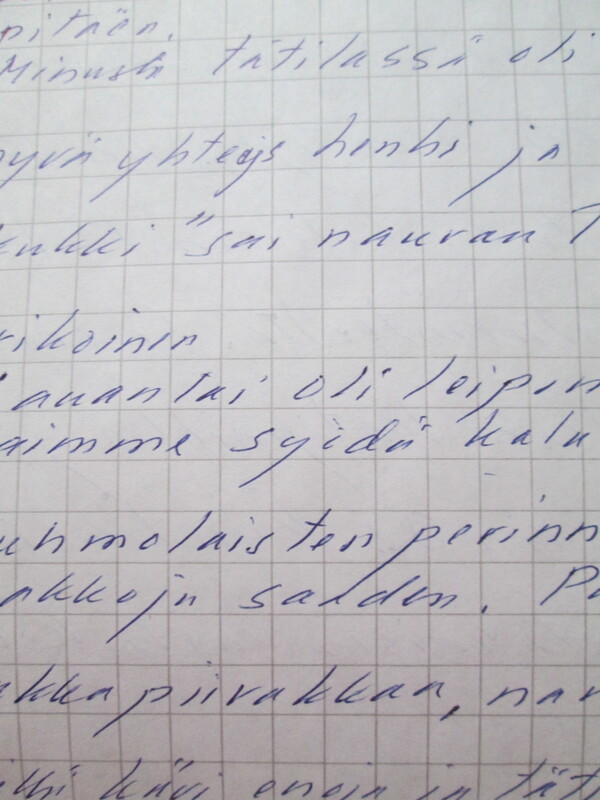 pitäen.
Minusta tätilässä oli
hyvä yhteys henki ja
kukki "sai nauvan
rikoinen
lauantai oli leipin
aimme syödä kala
uhmolaisten perinn
akkoja saaden. Pa
akka piirakkaa, nau
kävi ensin ja täti